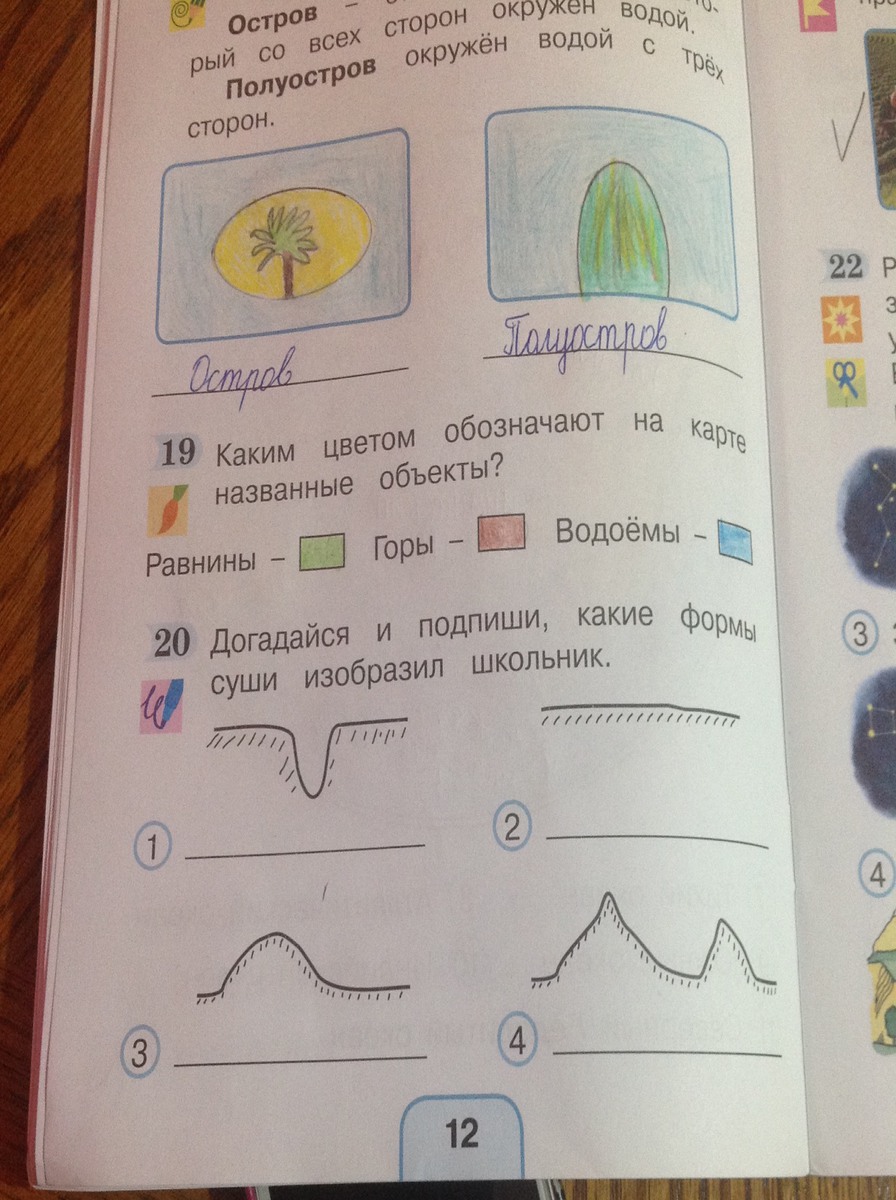 Остров –
рый со всех сторон окружён водой.
Полуостров окружён водой с трёх
сторон.
Остров
Полуостров
19 Каким цветом обозначают на карте
названные объекты?
Равнины – Горы – Водоёмы –
20 Догадайся и подпиши, какие формы
суши изобразил школьник.
1
2
3
4
12
22
3
4